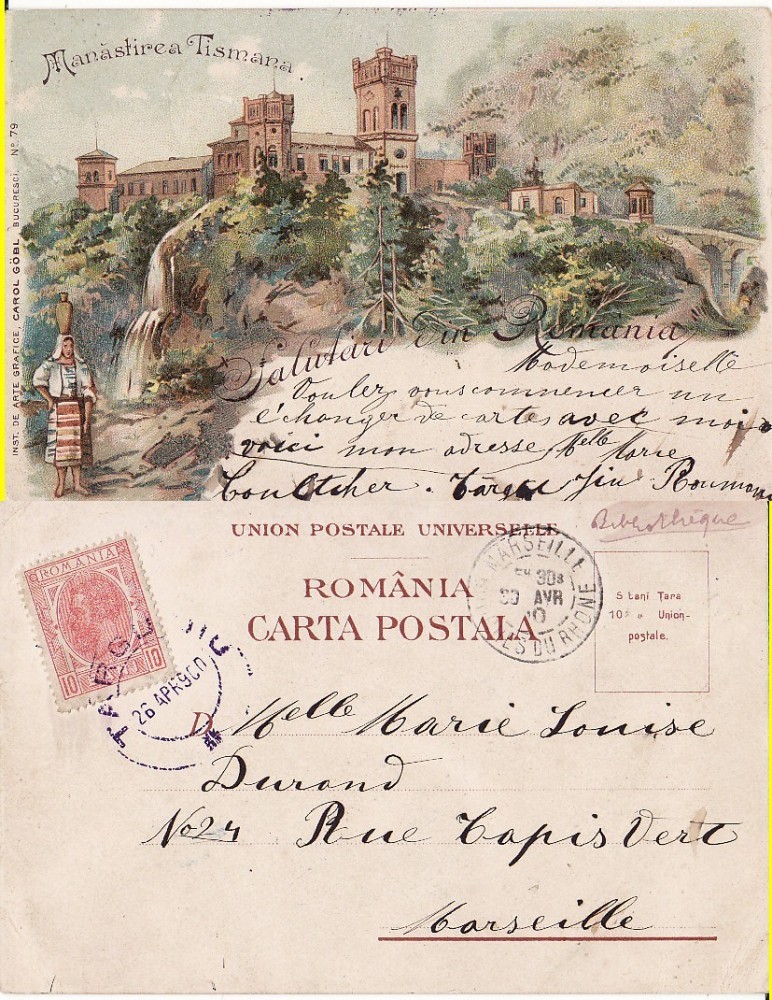 Manăstirea Tismana
INST. DE ARTE GRAFICE, CAROL GÖBL, BUCURESCI. No 79
Salutări din România
Mademoiselle
Voulez vous commencer un
échanger de cartes avec moi
voici mon adresse Melle Marie
Targu Jiu Roumanie
UNION POSTALE UNIVERSELLE
Bibliothèque
ROMÂNIA
CARTA POSTALA
ROMANIA
10 10
26 APR 900
MARSEILLE
30 AVR
DU RHONE
5 bani Țara
10 " " Union-
postale.
D Melle Marie Louise
Durand
No 24 Rue Tapis Vert
Marseille